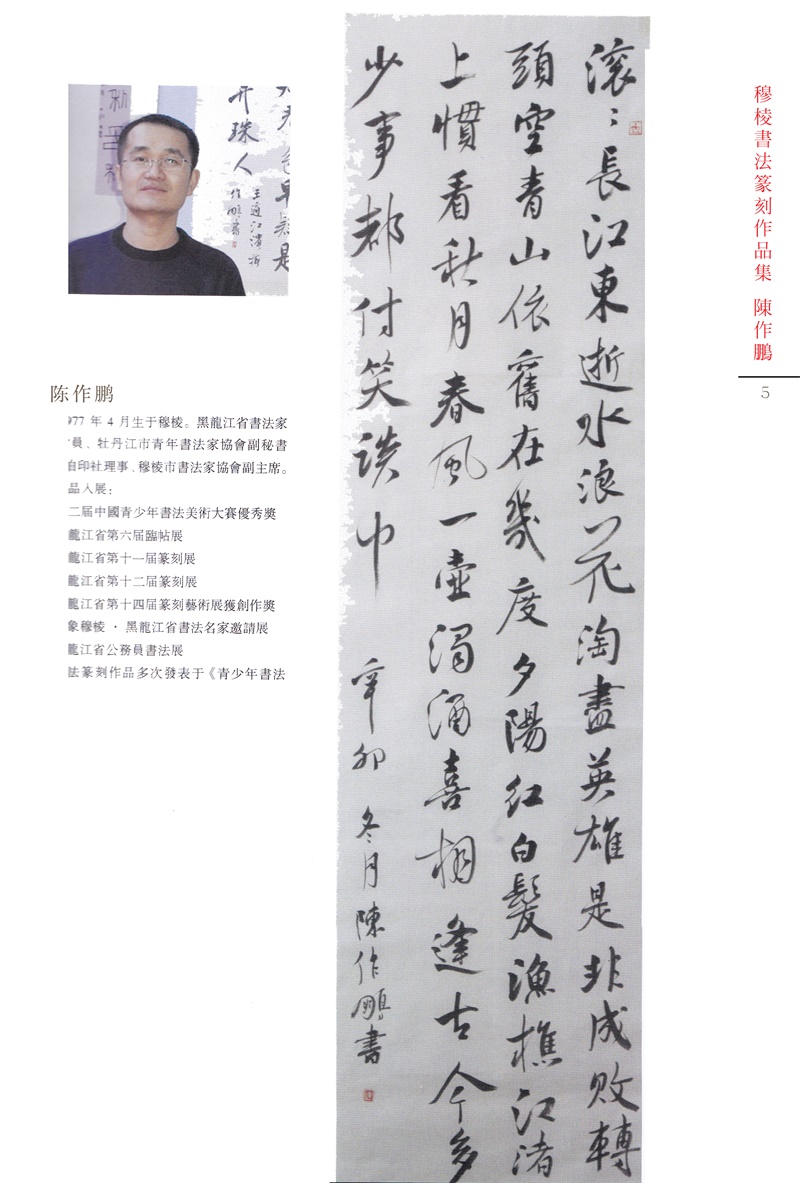 穆棱書法篆刻作品集 陳作鵬
5
滚〻長江東逝水浪花淘盡英雄是非成敗轉
頭空青山依舊在幾度夕陽紅白髮漁樵江渚
上慣看秋月春風一壺濁酒喜相逢古今多
少事都付笑談中 辛卯 冬月陳作鵬書
珠人
王適江濱梅
作鵬書
陈作鹏
977 年 4 月生于穆棱。黑龍江省書法家
員、牡丹江市青年書法家協會副秘書
自印社理事、穆棱市書法家協會副主席。
品入展：
二届中國青少年書法美術大賽優秀獎
龍江省第六届臨帖展
龍江省第十一届篆刻展
龍江省第十二届篆刻展
龍江省第十四届篆刻藝術展獲創作獎
象穆棱 · 黑龍江省書法名家邀請展
龍江省公務員書法展
法篆刻作品多次發表于《青少年書法